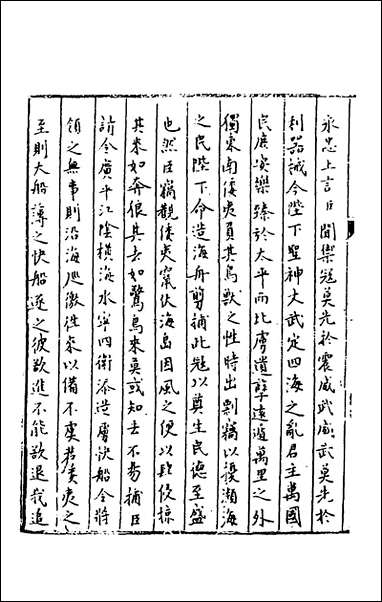 永忠上言臣聞禦寇莫先於震威武威武莫先於
利器械今陛下聖神文武定四海之亂君主萬國
民庶安樂臻於太平而北虜遺孽遠遁萬里之外
獨東南倭夷負其鳥獸之性時出剽竊以擾瀕海
之民陛下命造海舟剪捕此寇以奠生民德至盛
也然臣竊觀倭夷竄伏海島因風之便以肆侵掠
其來如奔狼其去如驚鳥來莫或知去不易捕臣
請令廣平江陰橫海水軍四衛添造虜快船令將
領之無事則沿海巡徼徃來以備不虞若倭夷之
至則大船薄之快船逐之彼欲進不能欲退我追